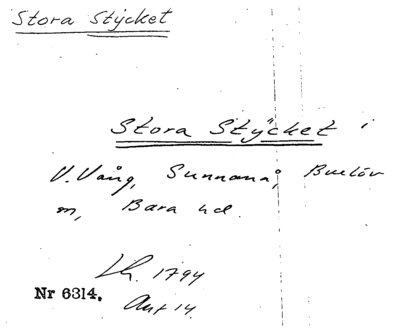 Stora Stÿcket
Stora Stÿcket i
V. Vång, Sunnanå, Burlöv
m, Bara hd.
Lh. 1794
Nr 6314. Akt 14